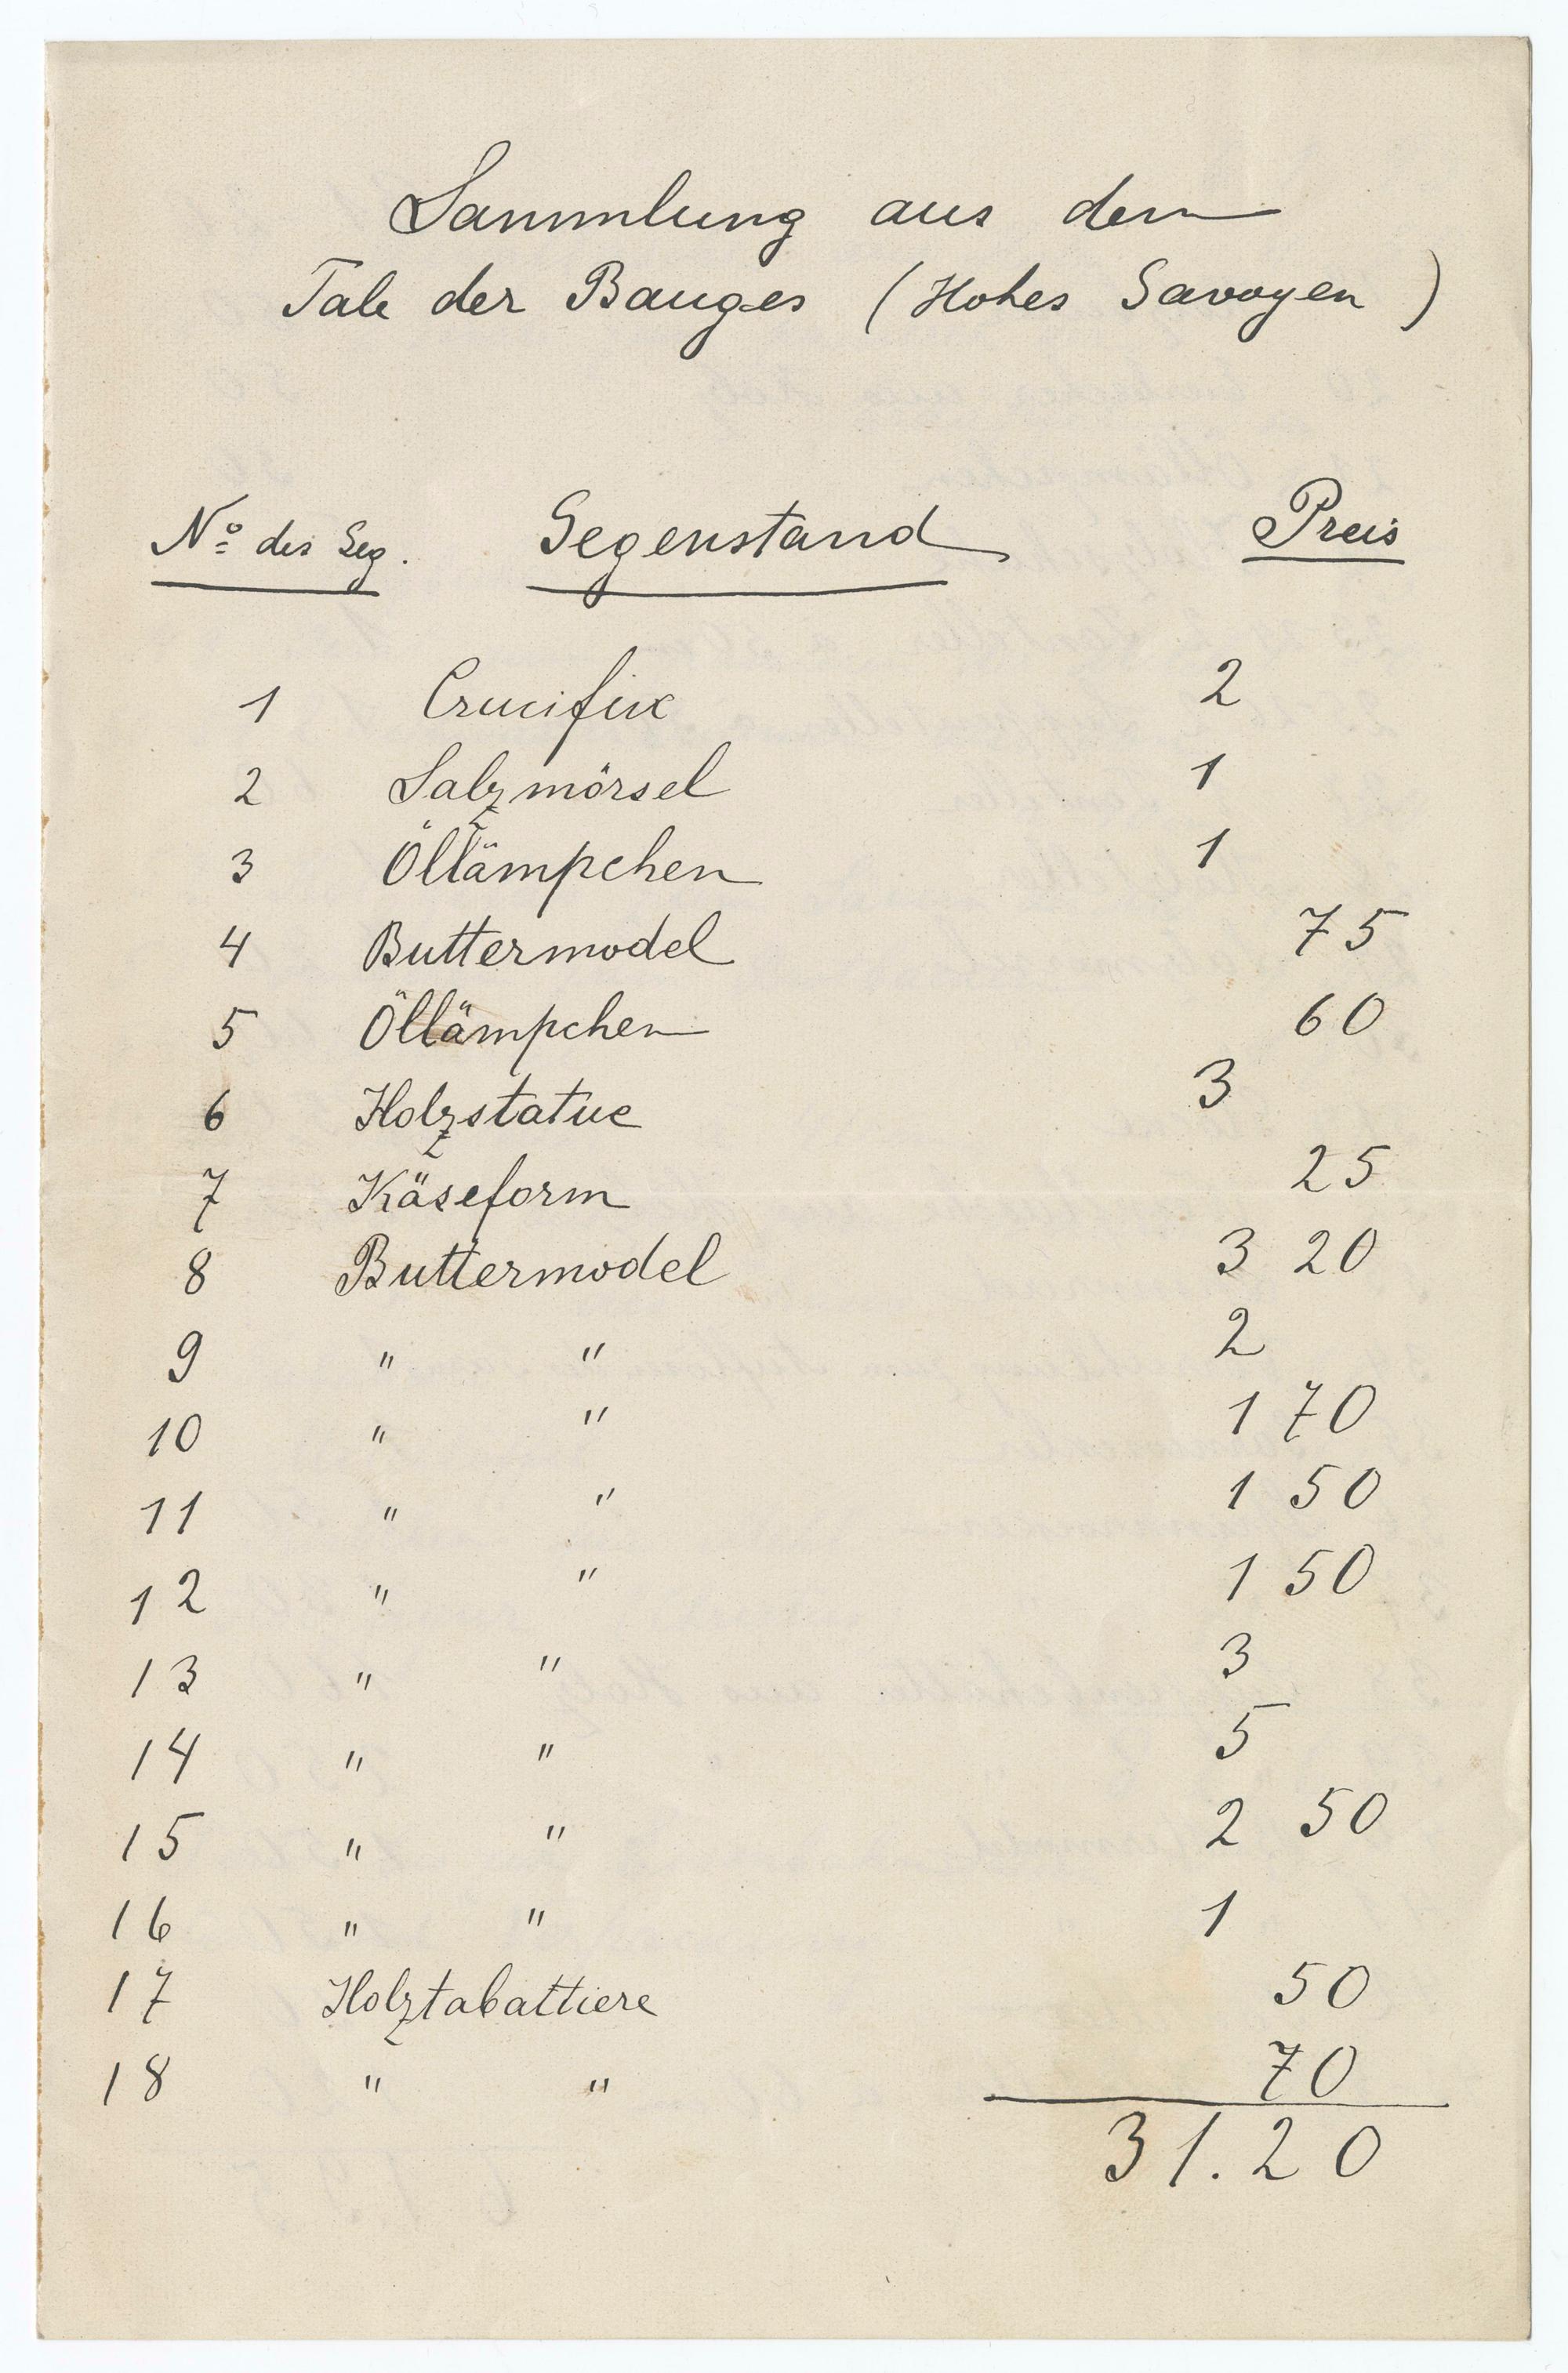 Sammlung aus dem
Tale der Bauges (Hohes Savoyen)
Nº des Geg. Gegenstand Preis
1 Crucifix 2
2 Salzmörsel 1
3 Öllämpchen 1
4 Buttermodel 75
5 Öllämpchen 60
6 Holzstatue 3
7 Käseform 25
8 Buttermodel 3 20
9 " " 2
10 " " 1 70
11 " " 1 50
12 " " 1 50
13 " " 3
14 " " 5
15 " " 2 50
16 " " 1
17 Holztabattiere 50
18 " " 70
31.20